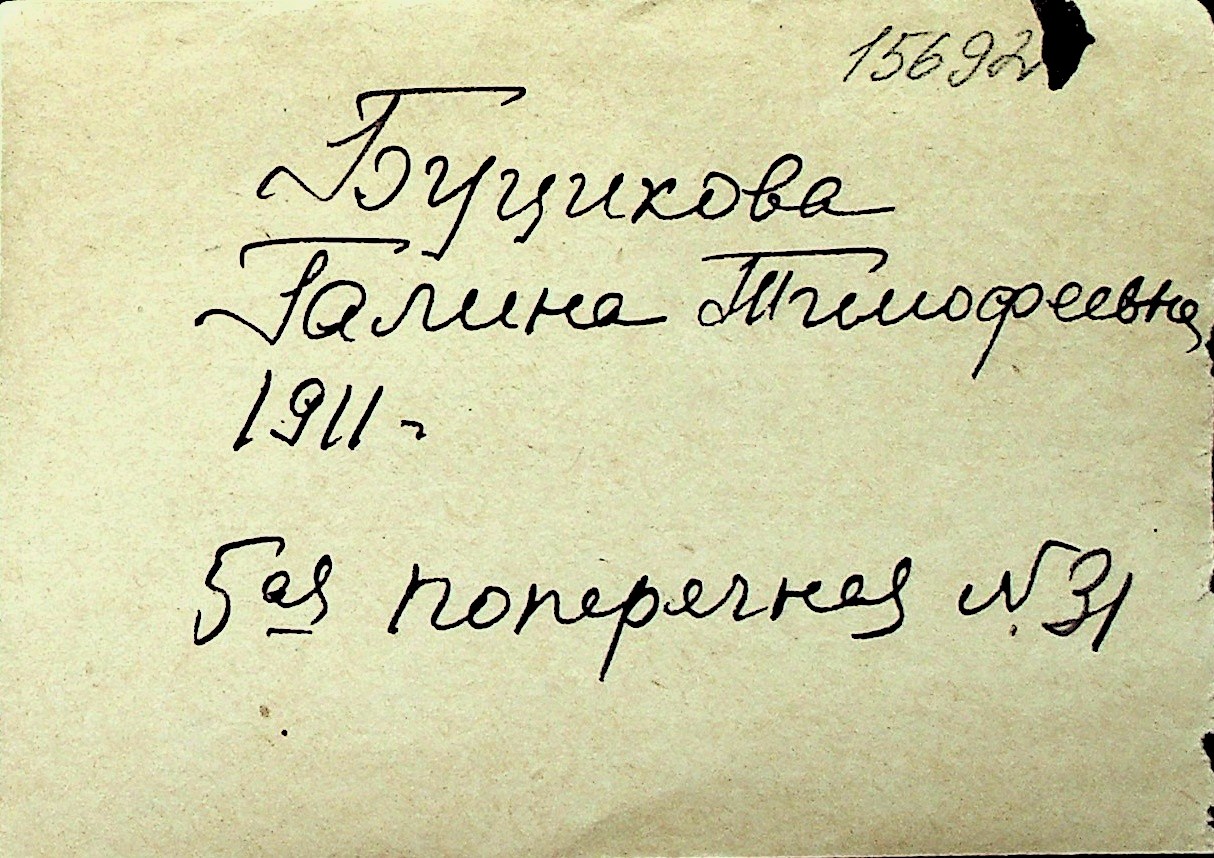 15692
Буцикова
Галина Тимофеевна
1911 г
5ая поперечная № 31